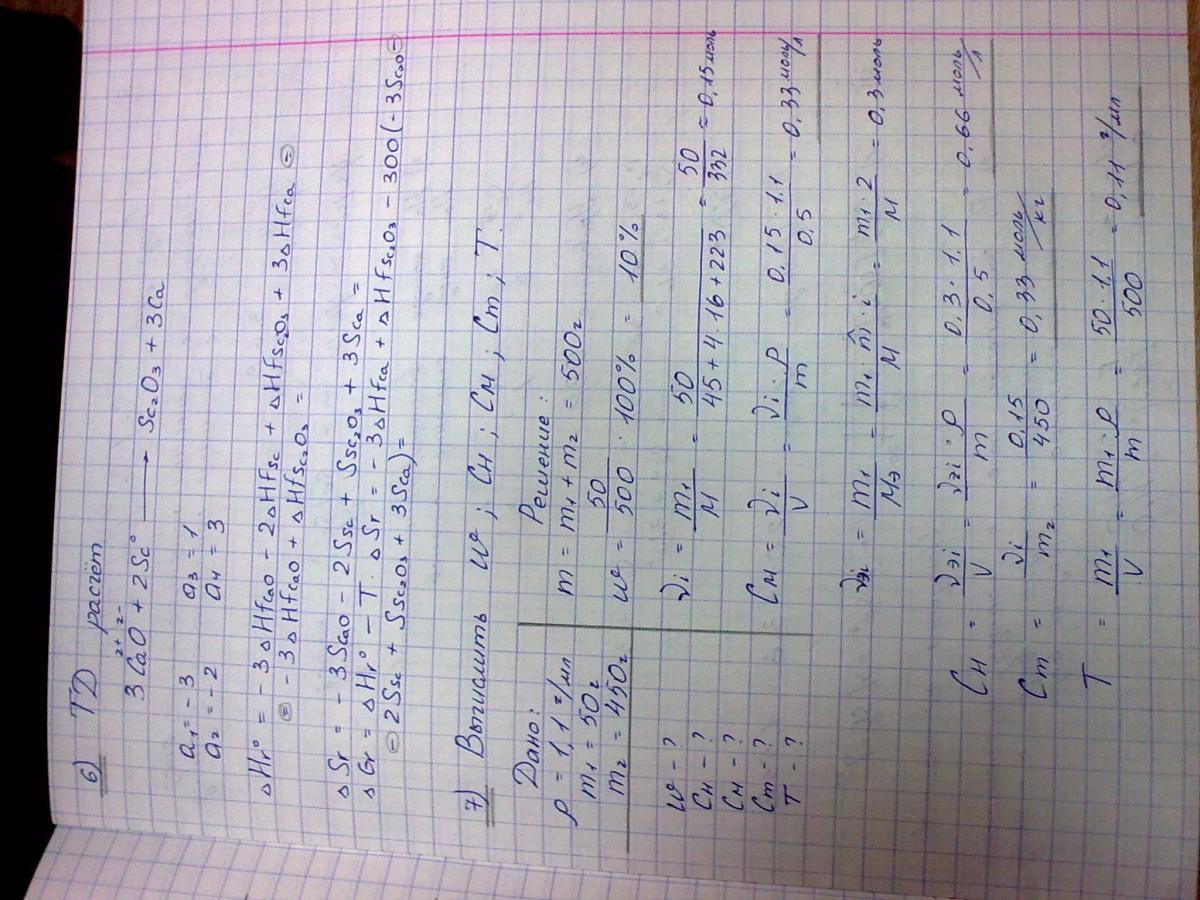 6) TD расчёт
2+ 2-
3 CaO + 2Sc° ⟶ Sc₂O₃ + 3Ca
a₁ = -3 a₃ = 1
a₂ = -2 a₄ = 3
ΔHr° = -3ΔHfCaO - 2ΔHfSc + ΔHfSc₂O₃ + 3ΔHfCa ⊖
⊖ -3ΔHfCaO + ΔHfSc₂O₃ =
ΔSr = -3SCaO - 2SSc + SSc₂O₃ + 3SCa =
ΔGr = ΔHr° - T·ΔSr = -3ΔHfCa + ΔHfSc₂O₃ - 300(-3SCaO ⊖
⊖ 2SSc + SSc₂O₃ + 3SCa) =
7) Вычислить W ; Cн ; Cм ; Cm ; T.
Дано:
ρ = 1,1 г/мл
m₁ = 50г
m₂ = 450г
W - ?
Cн - ?
Cм - ?
Cm - ?
T - ?
Решение:
m = m₁ + m₂ = 500г
W = 50/500 · 100% = 10%
νi = m₁/M = 50/(45 + 4·16 + 223) = 50/332 = 0,15 моль
Cм = νi/V = νi·ρ/m = 0,15·1.1/0,5 = 0,33 моль/л
νэi = m₁/Mэ = m₁ n̂i·i/M = m₁·2/M = 0,3 моль
Cн = νэi/V = νэi·ρ/m = 0,3·1.1/0,5 = 0,66 моль/л
Cm = νi/m₂ = 0,15/450 = 0,33 моль/кг
T = m₁/V = m₁·ρ/m = 50·1,1/500 = 0,11 г/мл